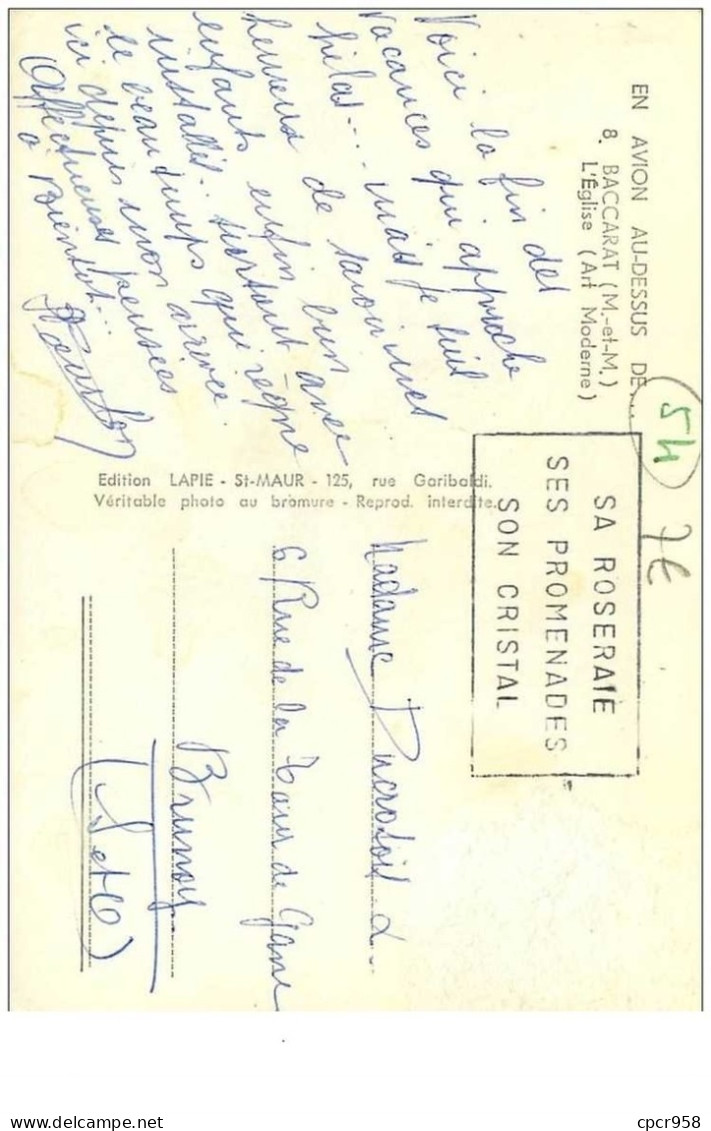 EN AVION AU-DESSUS DE...
8. BACCARAT (M.-et-M.)
L'Église (Art Moderne)
Voici la fin des
vacances qui approche
hélas.... mais je suis
heureux de savoir mes
enfants enfin bien avec
installés. surtout avec
le beau temps qui règne
ici depuis mon arrivée.
Affectueuses pensées
à bientôt...
Edition LAPIE - St-MAUR - 125, rue Garibaldi.
Véritable photo au bromure - Reprod. interdite.
54
7€
SA ROSERAIE
SES PROMENADES
SON CRISTAL
Madame
6 Rue de la Tour de
Brunoy
(S et O)
cpcr958